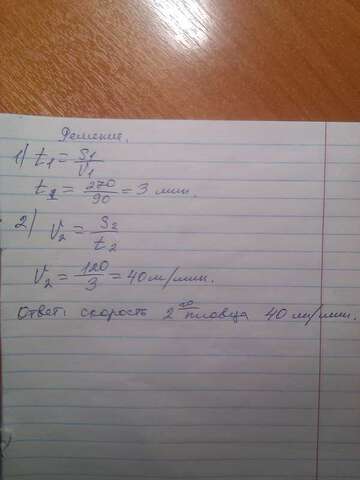 Решение.
1) t₁ = S₁/V₁
t₂ = 270/90 = 3 мин.
2) V₂ = S₂/t₂
V₂ = 120/3 = 40 м/мин.
Ответ: скорость 2ᵒᵍᵒ пловца 40 м/мин.